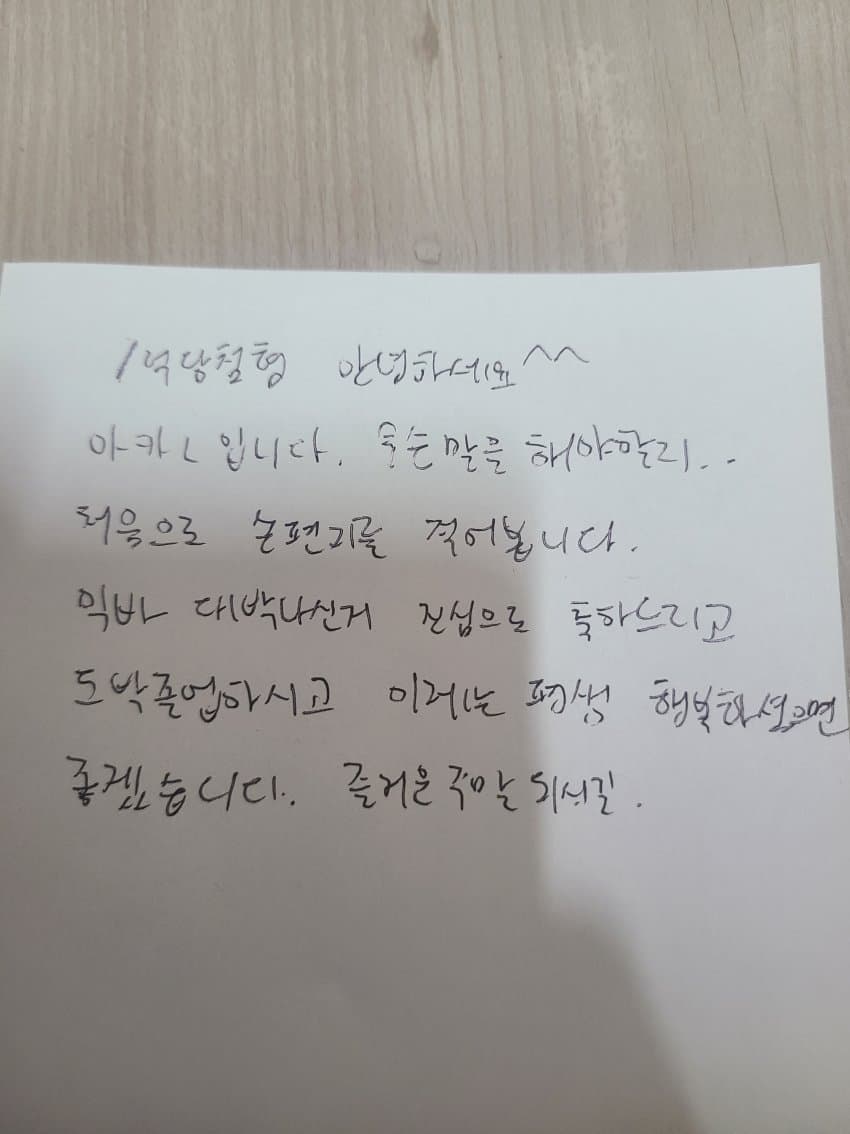 1억당첨형 안녕하세요^^
아카ㄴ입니다. 무슨말을 해야할지..
처음으로 손편지를 적어봅니다.
익바 대박나신거 진심으로 축하드리고
도박졸업하시고 이제는 평생 행복하셨으면
좋겠습니다. 즐거운 주말 되시길.